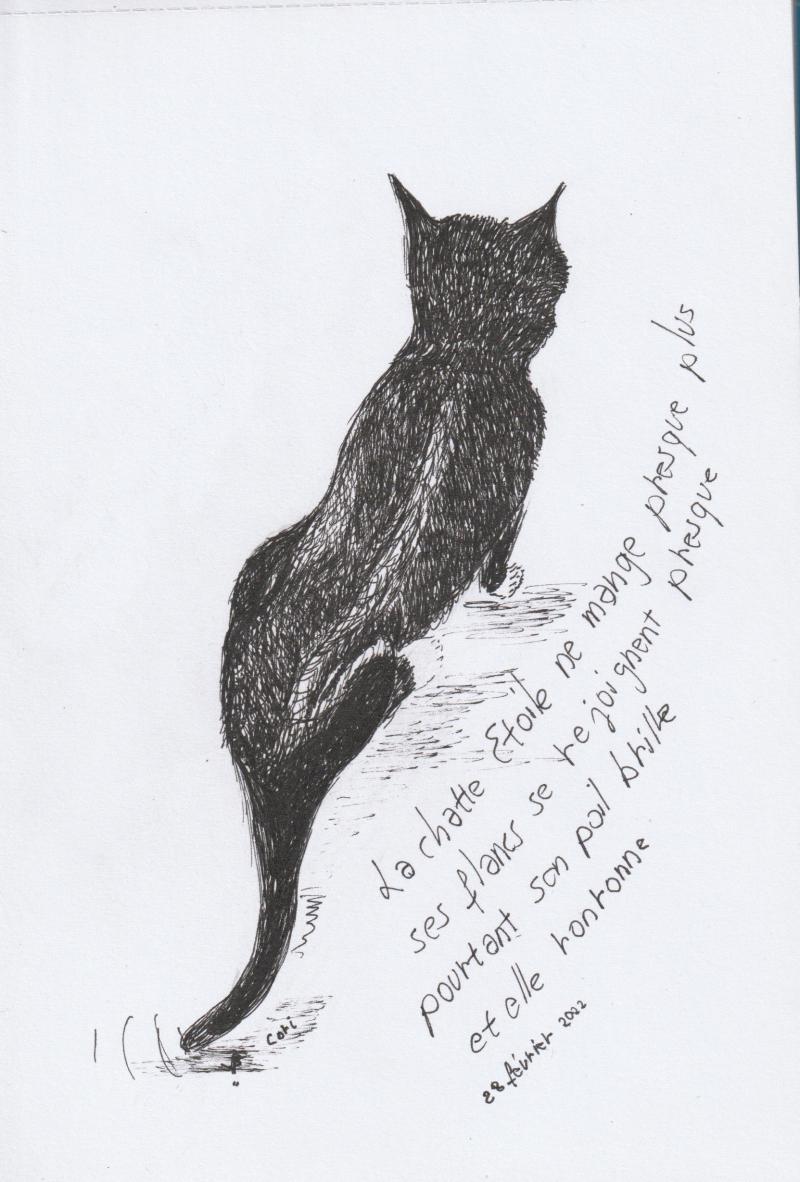 La chatte Etoile ne mange presque plus
ses flancs se rejoignent presque
pourtant son poil brille
et elle ronronne
28 février 2022
Cori